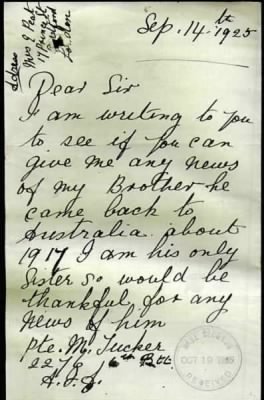 Sep. 14th 1925
Address
Mrs J Peat
17 Prince St
London
Dear Sir
I am writing to you
to see if you can
give me any news
of my Brother he
came back to
Australia about
1917 I am his only
Sister so would be
thankful for any
News of him
Pte. M. Tucker
2276 6th Btt.
A.I.F.
OCT 19 1925
RECEIVED